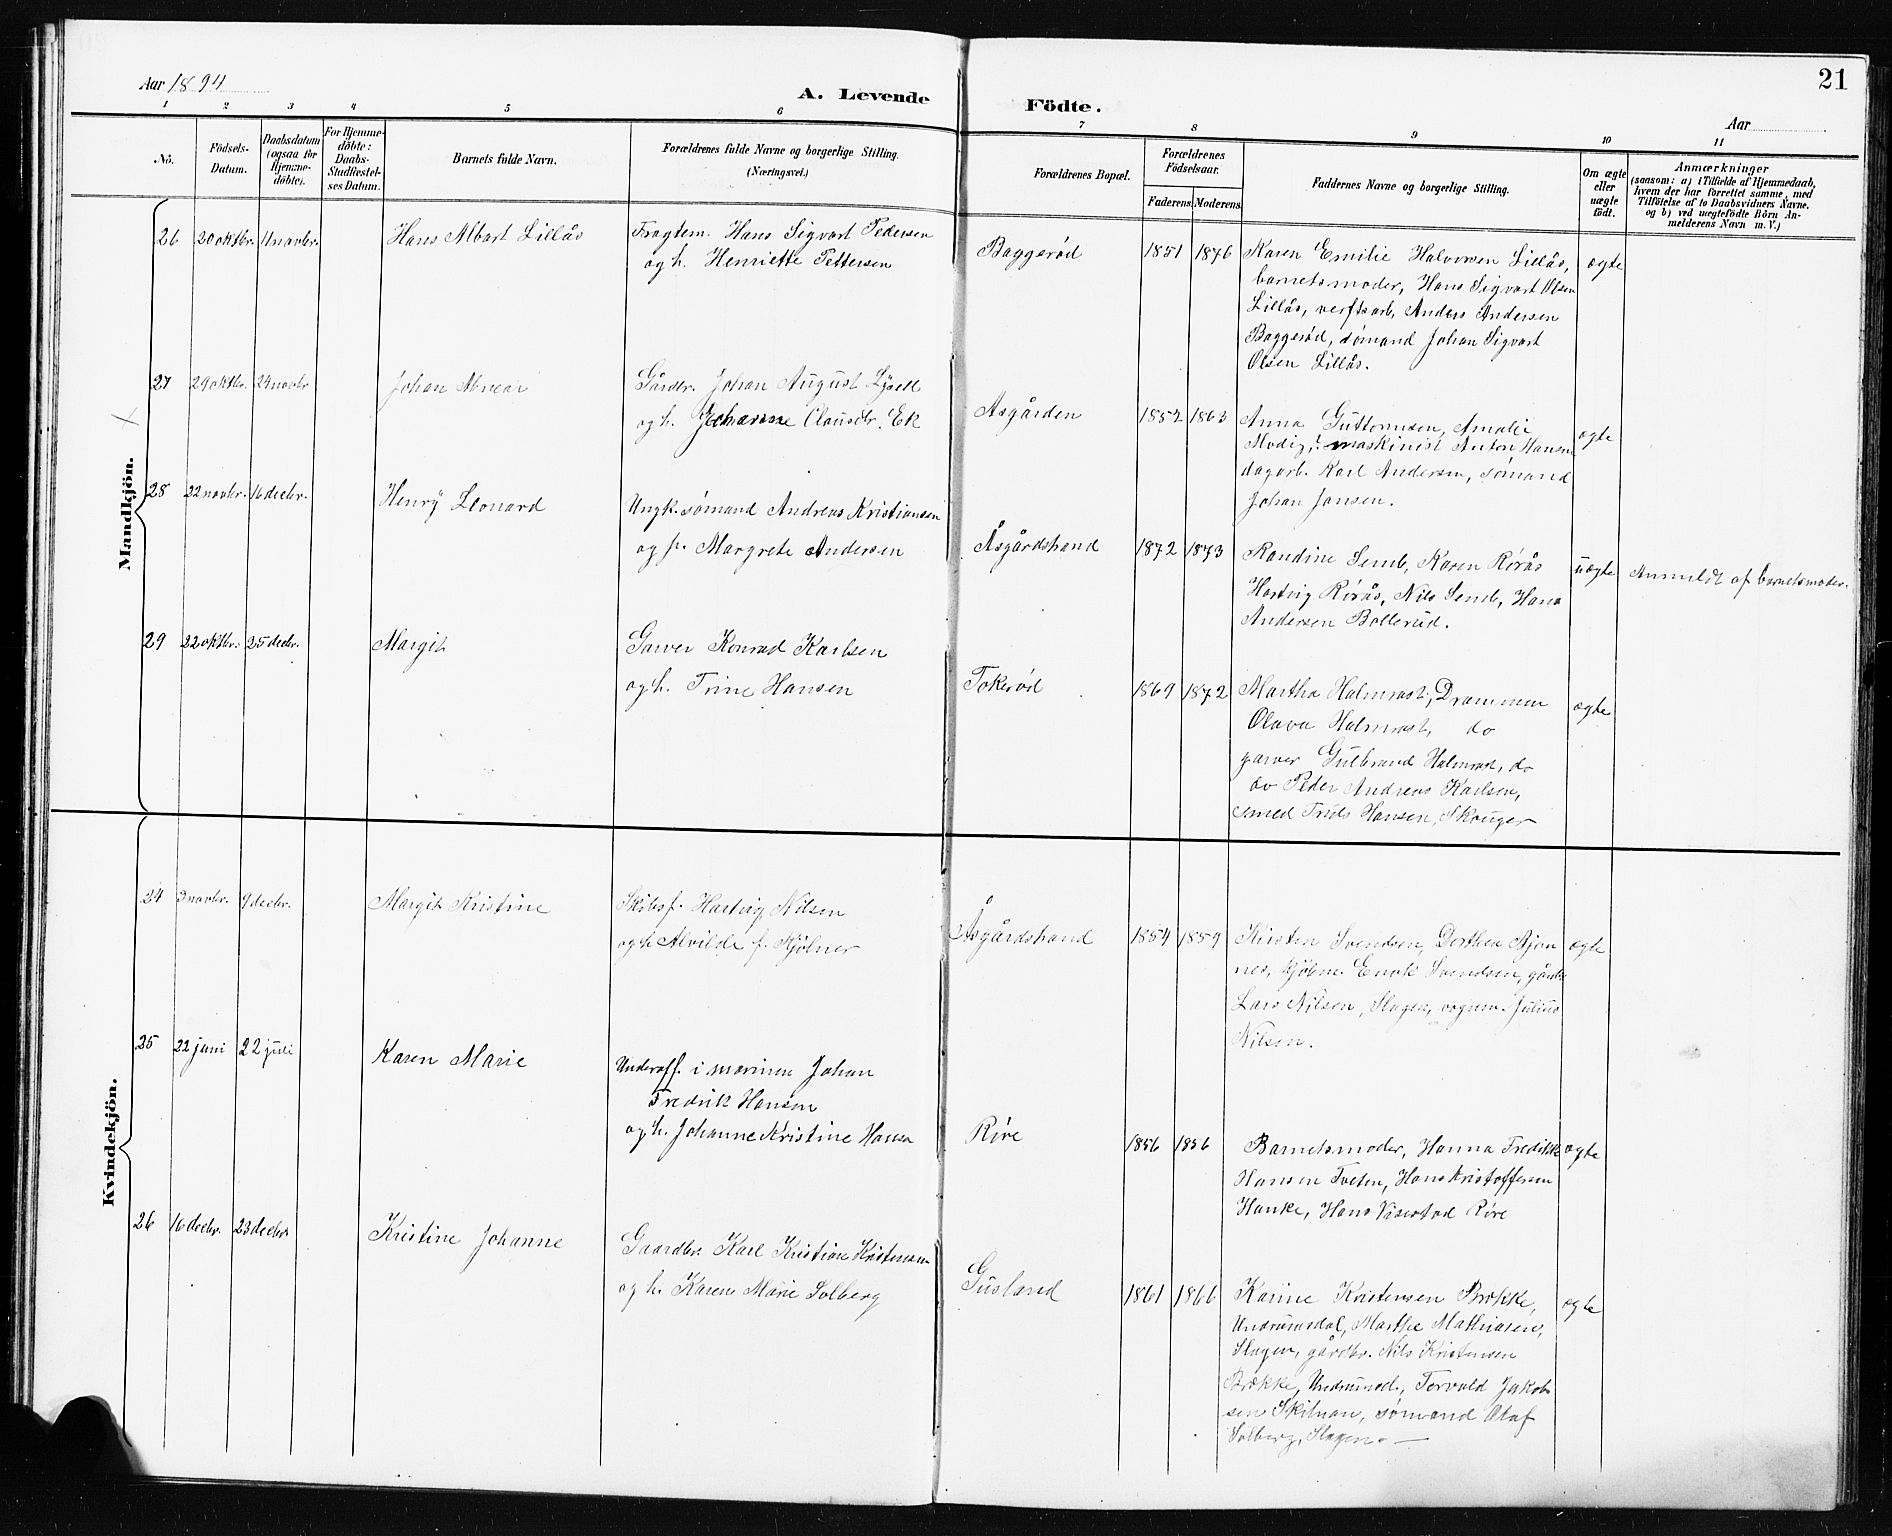 Aar 1894
A. Levende Födte.
21
Aar
1 2 3 4 5 6 7 8 9 10 11
No.
Födsels-Datum.
Daabsdatum (ogsaa for Hjemme-döbte).
For Hjemme-döbte: Daabs-Stadfæstel-ses Datum.
Barnets fulde Navn.
Forældrenes fulde Navne og borgerlige Stilling. (Næringsvei.)
Forældrenes Bopæl.
Forældrenes Födselsaar.
Faderens. Moderens.
Faddernes Navne og borgerlige Stilling.
Om ægte eller uægte födt.
Anmærkninger
(saasom: a) i Tilfælde af Hjemmedaab,
hvem der har forrettet samme, med
Tilföielse af to Daabsvidners Navne,
og b) ved uegtefödte Börn An-
melderens Navn m. V.)
Mandkjön.
26 20 oktbr. 11 novbr. Hans Albart Lillås
Fragtem. Hans Sigvart Pedersen
og h. Henriette Pettersen
Baggerød 1851 1876
Karen Emilie Halvorsen Lillås,
barnetsmoder, Hans Sigvart Olsen
Lillås, verftsarb. Anders Andersen
Baggerød, sømand Johan Sigvart
Olsen Lillås.
ægte
27 29 oktbr. 24 novbr Johan
Gårdbr. Johan August Lysell
og h. Johanne Clausdtr. Ek
Asgården 1852 1863
Anna Guttormsen, Amalie
Modig, maskinist Anton Hansen
dagarb. Karl Andersen, sømand
Johan Jansen.
ægte
28 22 novbr. 16 decbr. Henry Leonard
Ungk. sømand Andreas Kristiansen
og p. Margrete Andersen
Åsgårdstrand 1872 1873
Randine Semb, Karen Rørås
Hartvig Rørås, Nils Semb, Hans
Andersen Bollerud.
uægte
Anmeldt af barnetsmoder.
29 22 oktbr. 25 decbr. Margit
Garver Konrad Karlsen
og h. Trine Hansen
Tokerød 1869 1872
Martha Halmrast, Drammen
Olava Halmrast, do
garver Gulbrand Halmrast, do
do Peder Andreas Karlsen,
smed Truls Hansen, Skouger
ægte
Kvindekjön.
24 3 novbr. 9 decbr. Margit Kristine
Skibsf. Hartvig Nilsen
og h Alvilde f. Kjølner
Åsgårdstrand 1854 1859
Kirsten Svendsen, Dorthea
nes, kjøbm. Enok Svendsen, gårdbr
Lars Nilsen, Slagen, vognm. Julius
Nilsen.
ægte
25 22 juni 22 juli Karen Marie
Underoff. i marinen Johan
Fredrik Hansen
og h. Johanne Kristine Hansen
Røre 1856 1856
Barnetsmoder, Hanna Fredrikke
Hansen Tveten, Hans Kristoffersen
Hanke, Hans Røre
ægte
26 16 decbr. 23 decbr. Kristine Johanne
Gaardbr. Karl Kristian Kristensen
og h. Karen Marie Solberg
Gusland 1861 1866
Karine Kristensen Brekke,
Undrumsdal, Marthe Mathiasen,
Slagen, gårdbr. Nils Kristensen
Brekke, Undrumsd., Torvald Jakob-
sen Skilnan, sømand Olaf
Solberg, Slagen. —
ægte